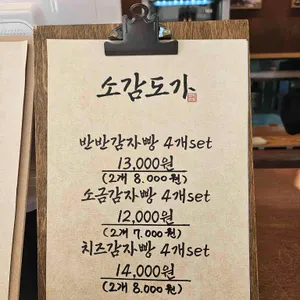 소감도가
반반감자빵 4개set
13,000원
(2개 8.000원)
소금감자빵 4개set
12,000원
(2개 7.000원)
치즈감자빵 4개set
14,000원
(2개 8.000원)